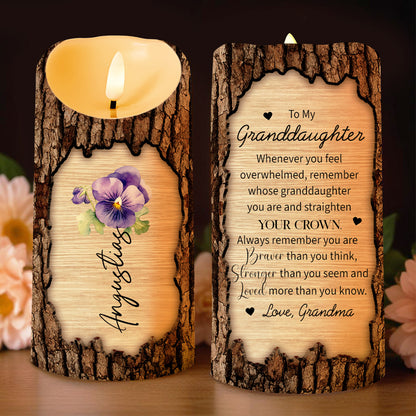 Angustias
To My
Granddaughter
Whenever you feel
overwhelmed, remember
whose granddaughter
you are and straighten
YOUR CROWN.
Always remember you are
Braver than you think,
Stronger than you seem and
Loved more than you know.
Love, Grandma